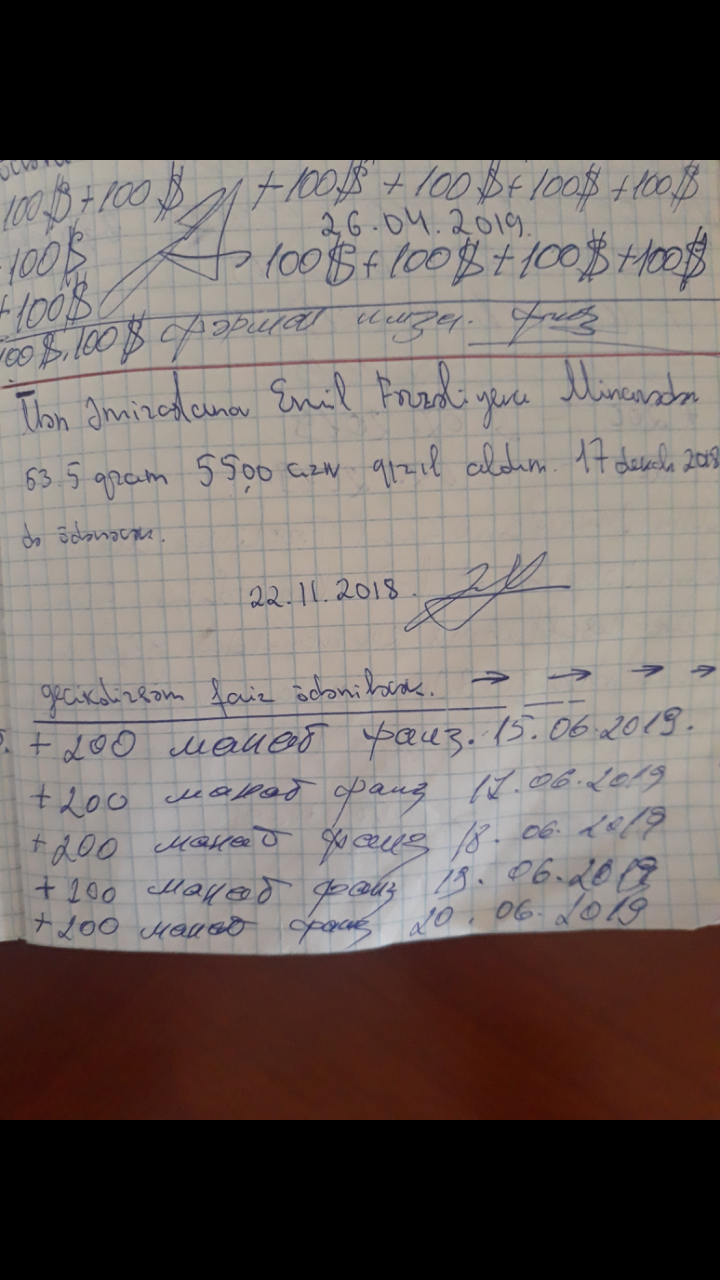 100$ + 100$ + 100$ + 100$ + 100$ + 100$
26.04.2019.
100$ 100$ + 100$ + 100$ + 100$
+ 100$
100$, 100$ формал имза. фаиз
Mən Əmiraslanov Emil Fərzəliyeva Minarədən
53.5 qram 5500 azn qızıl aldım. 17 dekabr 2018
də ödənəcək.
22.11.2018.
gecikdirsəm faiz ödəniləcək. → → → →
+ 200 манат фаиз. 15.06.2019.
+ 200 манат фаиз 17.06.2019
+ 200 манат фаиз 18.06.2019
+ 200 манат фаиз 19.06.2019
+ 200 манат фаиз 20.06.2019